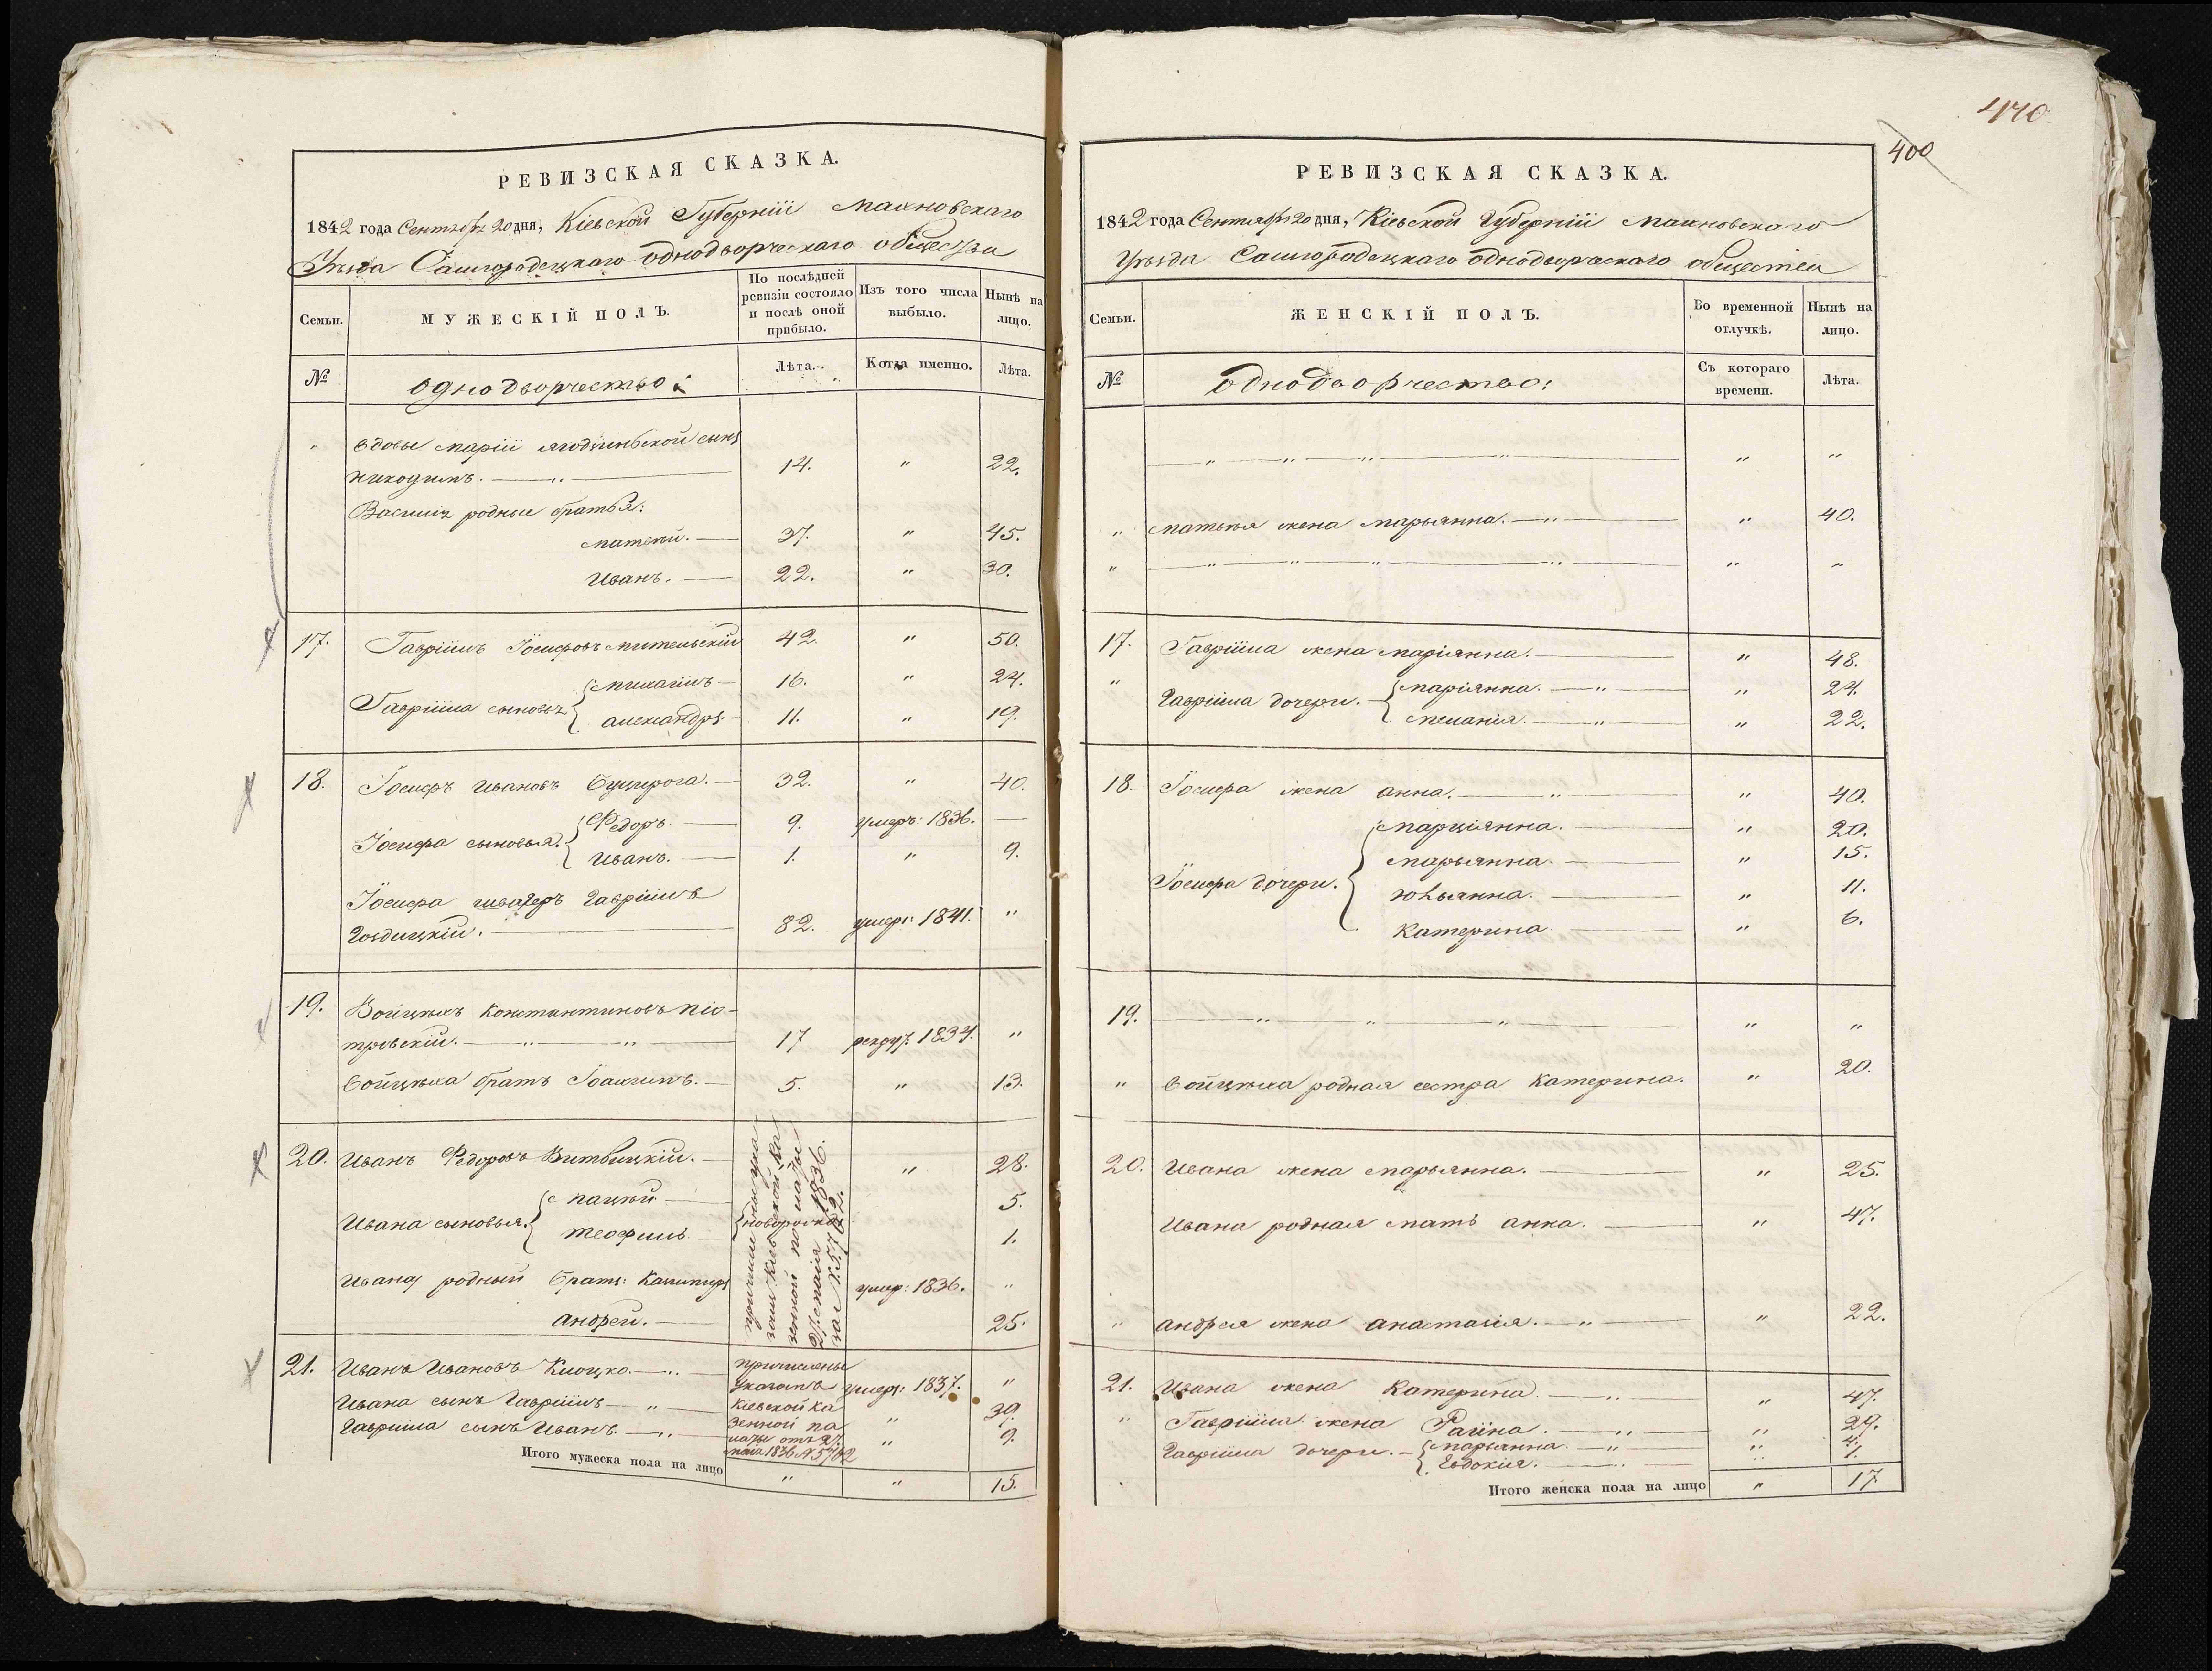 РЕВИЗСКАЯ СКАЗКА.
1842 года Сентябр 20 дня, Кіевской Губерніи Махновскаго
Уѣзда Самгородецкаго однодворческаго общества
Семьи.
МУЖЕСКІЙ ПОЛЪ.
По послѣдней ревизіи состояло и послѣ оной прибыло.
Изъ того числа выбыло.
Нынѣ на лицо.
№
однодворчество:
Лѣта.
Когда именно.
Лѣта.
" вдовы Маріи сынъ
Никодимъ. — " — 14. " 22.
родные братья:
Матвѣй. — 37. " 45.
Иванъ. — 22. " 30.
17. Гавріилъ Іосифовъ 42. " 50.
Гавріила сыновья { Михаилъ — 16. " 24.
Александръ — 11. " 19.
18. Іосифъ Ивановъ 32. " 40.
Іосифа сыновья. { Федоръ. — 9. умеръ: 1836. —
Иванъ. — 1. " 9.
Іосифа швагеръ Гавріилъ
82. умеръ: 1841. "
19. Войцѣхъ Константиновъ Піо-
тровскій. — " — " — 17 рекрут. 1834. "
Войцѣха братъ Іоакимъ. — 5. " 13.
20. Иванъ Федоровъ Витвицкій. — " 28.
Ивана сыновья. { Мацѣй — 5.
Теофилъ — } новорожд. 1.
Ивана родный братъ: Казимиръ умер: 1836. "
Андрей. — 25.
причислены указомъ Кіевской Казенной палаты 27. мая 1836. за № 5762.
21. Иванъ Ивановъ Клоцко. — " умеръ: 1837. "
Ивана сынъ Гавріилъ — " — " 39.
Гавріила сынъ Иванъ. — " — " 9.
причислены
указомъ
Кіевской Ка
зенной па
латы отъ 27.
мая 1836. № 5762
Итого мужеска пола на лицо " " 15.
470
400
РЕВИЗСКАЯ СКАЗКА.
1842 года Сентября 20 дня, Кіевской Губерніи Махновскаго
Уѣзда Самгородецкаго однодворческаго общества
Семьи.
ЖЕНСКІЙ ПОЛЪ.
Во временной отлучкѣ.
Нынѣ на лицо.
№
однодворчество:
Съ котораго времени.
Лѣта.
— " — " — " — " — " "
" Матвѣя жена Марьянна. — " — " 40.
" — " — " — " — " — " "
17. Гавріила жена Маріянна. — " 48.
" Гавріила дочери. — { Маріянна. — " — " 24.
Меланія. — " — " 22.
18. Іосифа жена Анна. — " — " 40.
Іосифа дочери. { Марціянна. — " 20.
Марьянна. — " 15.
Юльянна. — " 11.
Катерина — " 6.
19. — " — " — " — " "
" Войцѣха родная сестра Катерина. " 20.
20. Ивана жена Марьянна. — " 25.
Ивана родная мать Анна. — " 47.
" Андрея жена Анастасія. — " — " 22.
21. Ивана жена Катерина. — " — " 47.
" Гавріила жена Раина. — " — " 29.
Гавріила дочери. — { Марьянна — " — " 4.
Евдокія. — " — " 1.
Итого женска пола на лицо " 17.